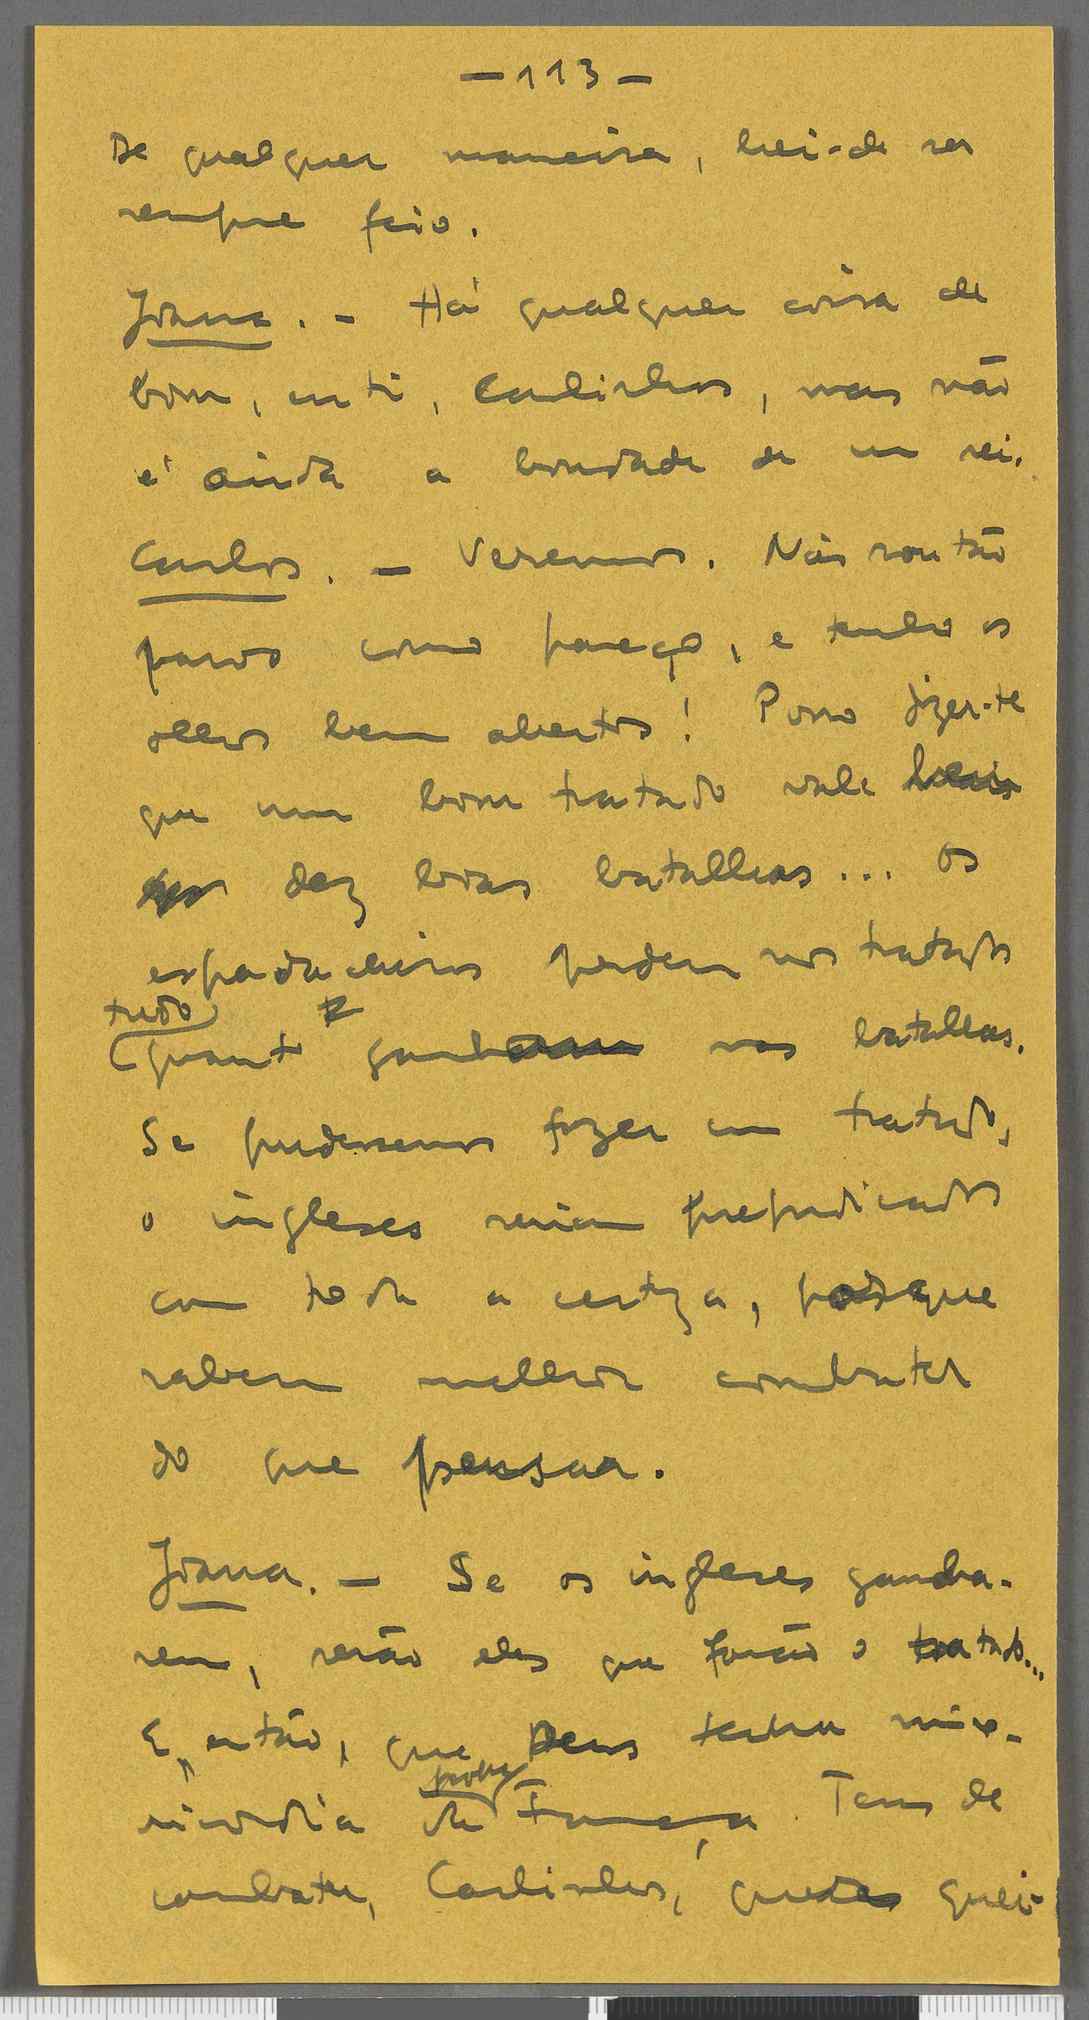 — 113 —
De qualquer maneira, hei-de ser
sempre feio.
Joana. — Há qualquer coisa de
bom, em ti, Carlinhos, mas não
é ainda a bondade de um rei.
Carlos. — Veremos. Não sou tão
parvo como pareço, e tenho os
olhos bem abertos! Posso dizer-te
que um bom tratado vale
dez boas batalhas... Os
espadachins perdem nos tratados
tudo
quanto ganham nas batalhas.
Se pudessemos fazer um tratado,
o ingleses seriam prejudicados
com toda a certeza, porque
sabem melhor combater
do que pensar.
Joana. — Se os ingleses ganha-
rem, serão eles que farão o tratado...
E, então, que Deus tenha mise-
pobre
ricordia da França. Tens de
combater, Carlinhos, queiras quei-